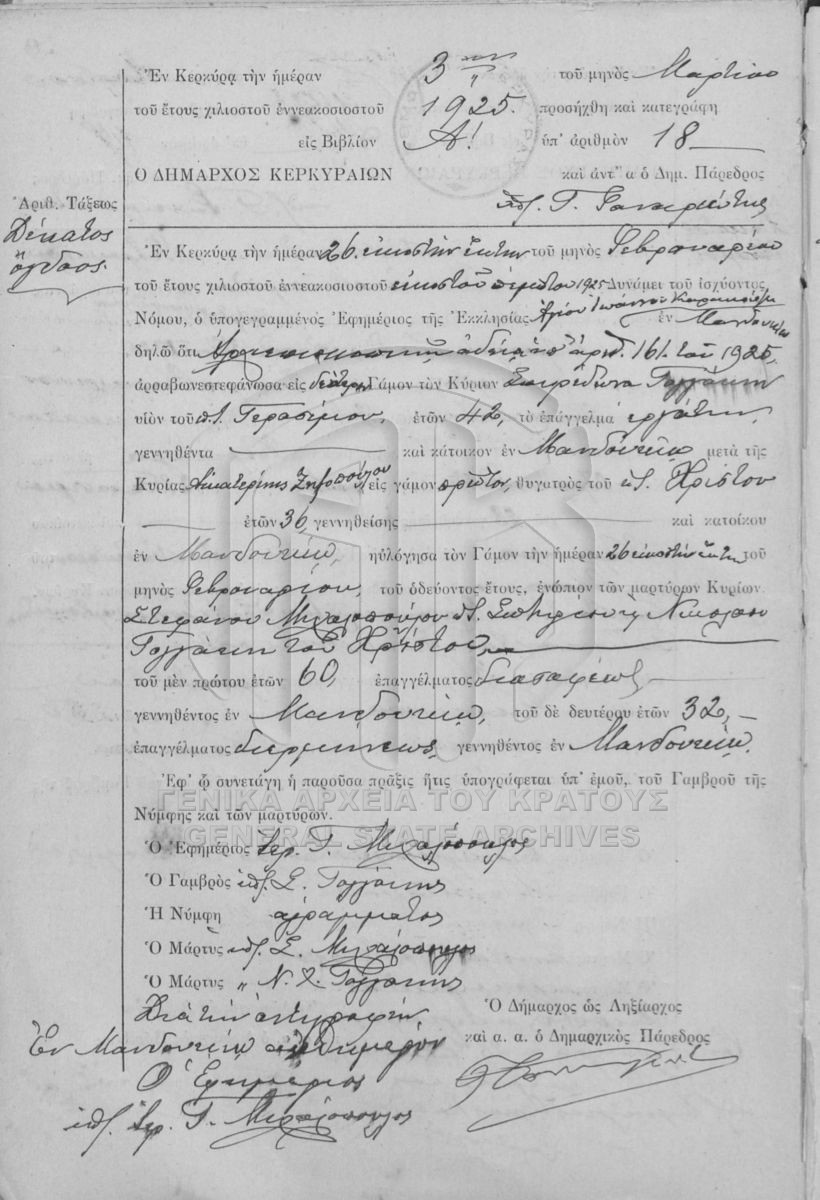 Ἐν Κερκύρᾳ τὴν ἡμέραν 3ην τοῦ μηνὸς Μαρτίου
τοῦ ἔτους χιλιοστοῦ ἐννεακοσιοστοῦ 1925. προσήχθη καὶ κατεγράφη
εἰς Βιβλίον Α! ὑπ' ἀριθμὸν 18
Ο ΔΗΜΑΡΧΟΣ ΚΕΡΚΥΡΑΙΩΝ καὶ ἀντ' α ὁ Δημ. Πάρεδρος
Ἀριθ. Τάξεως
ὑπ. Γ.
Δέκατος
ὄγδοος
Ἐν Κερκύρᾳ τὴν ἡμέραν 26 εἰκοστὴν ἕκτην τοῦ μηνὸς Φεβρουαρίου
τοῦ ἔτους χιλιοστοῦ ἐννεακοσιοστοῦ εἰκοστοῦ πέμπτου 1925 Δυνάμει τοῦ ἰσχύοντος
Νόμου, ὁ ὑπογεγραμμένος Ἐφημέριος τῆς Ἐκκλησίας Ἁγίου Ἰωάννου ἐν Μανδουκίῳ
δηλῶ ὅτι Ἀρχιεπισκοπικῇ ἀδείᾳ ὑπ' ἀριθ. 161 τοῦ 1925,
ἀρραβωνεστεφάνωσα εἰς δεύτερον Γάμον τὸν Κύριον Σπυρίδωνα Γογγάκην
υἱὸν τοῦ π. Γερασίμου, ἐτῶν 42, τὸ ἐπάγγελμα ἐργάτην,
γεννηθέντα καὶ κάτοικον ἐν Μανδουκίῳ μετὰ τῆς
Κυρίας Αἰκατερίνης Ζηφοπούλου εἰς γάμον πρῶτον, θυγατρὸς τοῦ π. Χρίστου
ἐτῶν 36, γεννηθείσης καὶ κατοίκου
ἐν Μανδουκίῳ, ηὐλόγησα τὸν Γάμον τὴν ἡμέραν 26 εἰκοστὴν ἕκτην τοῦ
μηνὸς Φεβρουαρίου, τοῦ ὁδεύοντος ἔτους, ἐνώπιον τῶν μαρτύρων Κυρίων
Στεφάνου Μιχαλοποῦλου π. Σωτηρίου Νικολάου
Γογγάκη τοῦ Χρίστου,
τοῦ μὲν πρώτου ἐτῶν 60, ἐπαγγέλματος
γεννηθέντος ἐν Μανδουκίῳ, τοῦ δὲ δευτέρου ἐτῶν 32,
ἐπαγγέλματος διερμηνέως, γεννηθέντος ἐν Μανδουκίῳ.
Ἐφ' ᾧ συνετάγη ἡ παροῦσα πρᾶξις ἥτις ὑπογράφεται ὑπ' ἐμοῦ, τοῦ Γαμβροῦ τῆς
ΓΕΝΙΚΑ ΑΡΧΕΙΑ ΤΟΥ ΚΡΑΤΟΥΣ
Νύμφης καὶ τῶν μαρτύρων.
GENERAL STATE ARCHIVES
Ὁ Ἐφημέριος Ἱερ. Γ. Μιχαλόπουλος
Ὁ Γαμβρὸς ὑπ. Σ. Γογγάκης
Ἡ Νύμφη ἀγράμματος
Ὁ Μάρτυς ὑπ. Σ. Μιχαλόπουλος
Ὁ Μάρτυς " Ν. Χ. Γογγάκης
Διὰ τὴν ἀντιγραφὴν
Ὁ Δήμαρχος ὡς Ληξίαρχος
Ἐν Μανδουκίῳ αὐθημερόν
καὶ α. α. ὁ Δημαρχικὸς Πάρεδρος
Ὁ Ἐφημέριος
ὑπ. Ἱερ. Γ. Μιχαλόπουλος